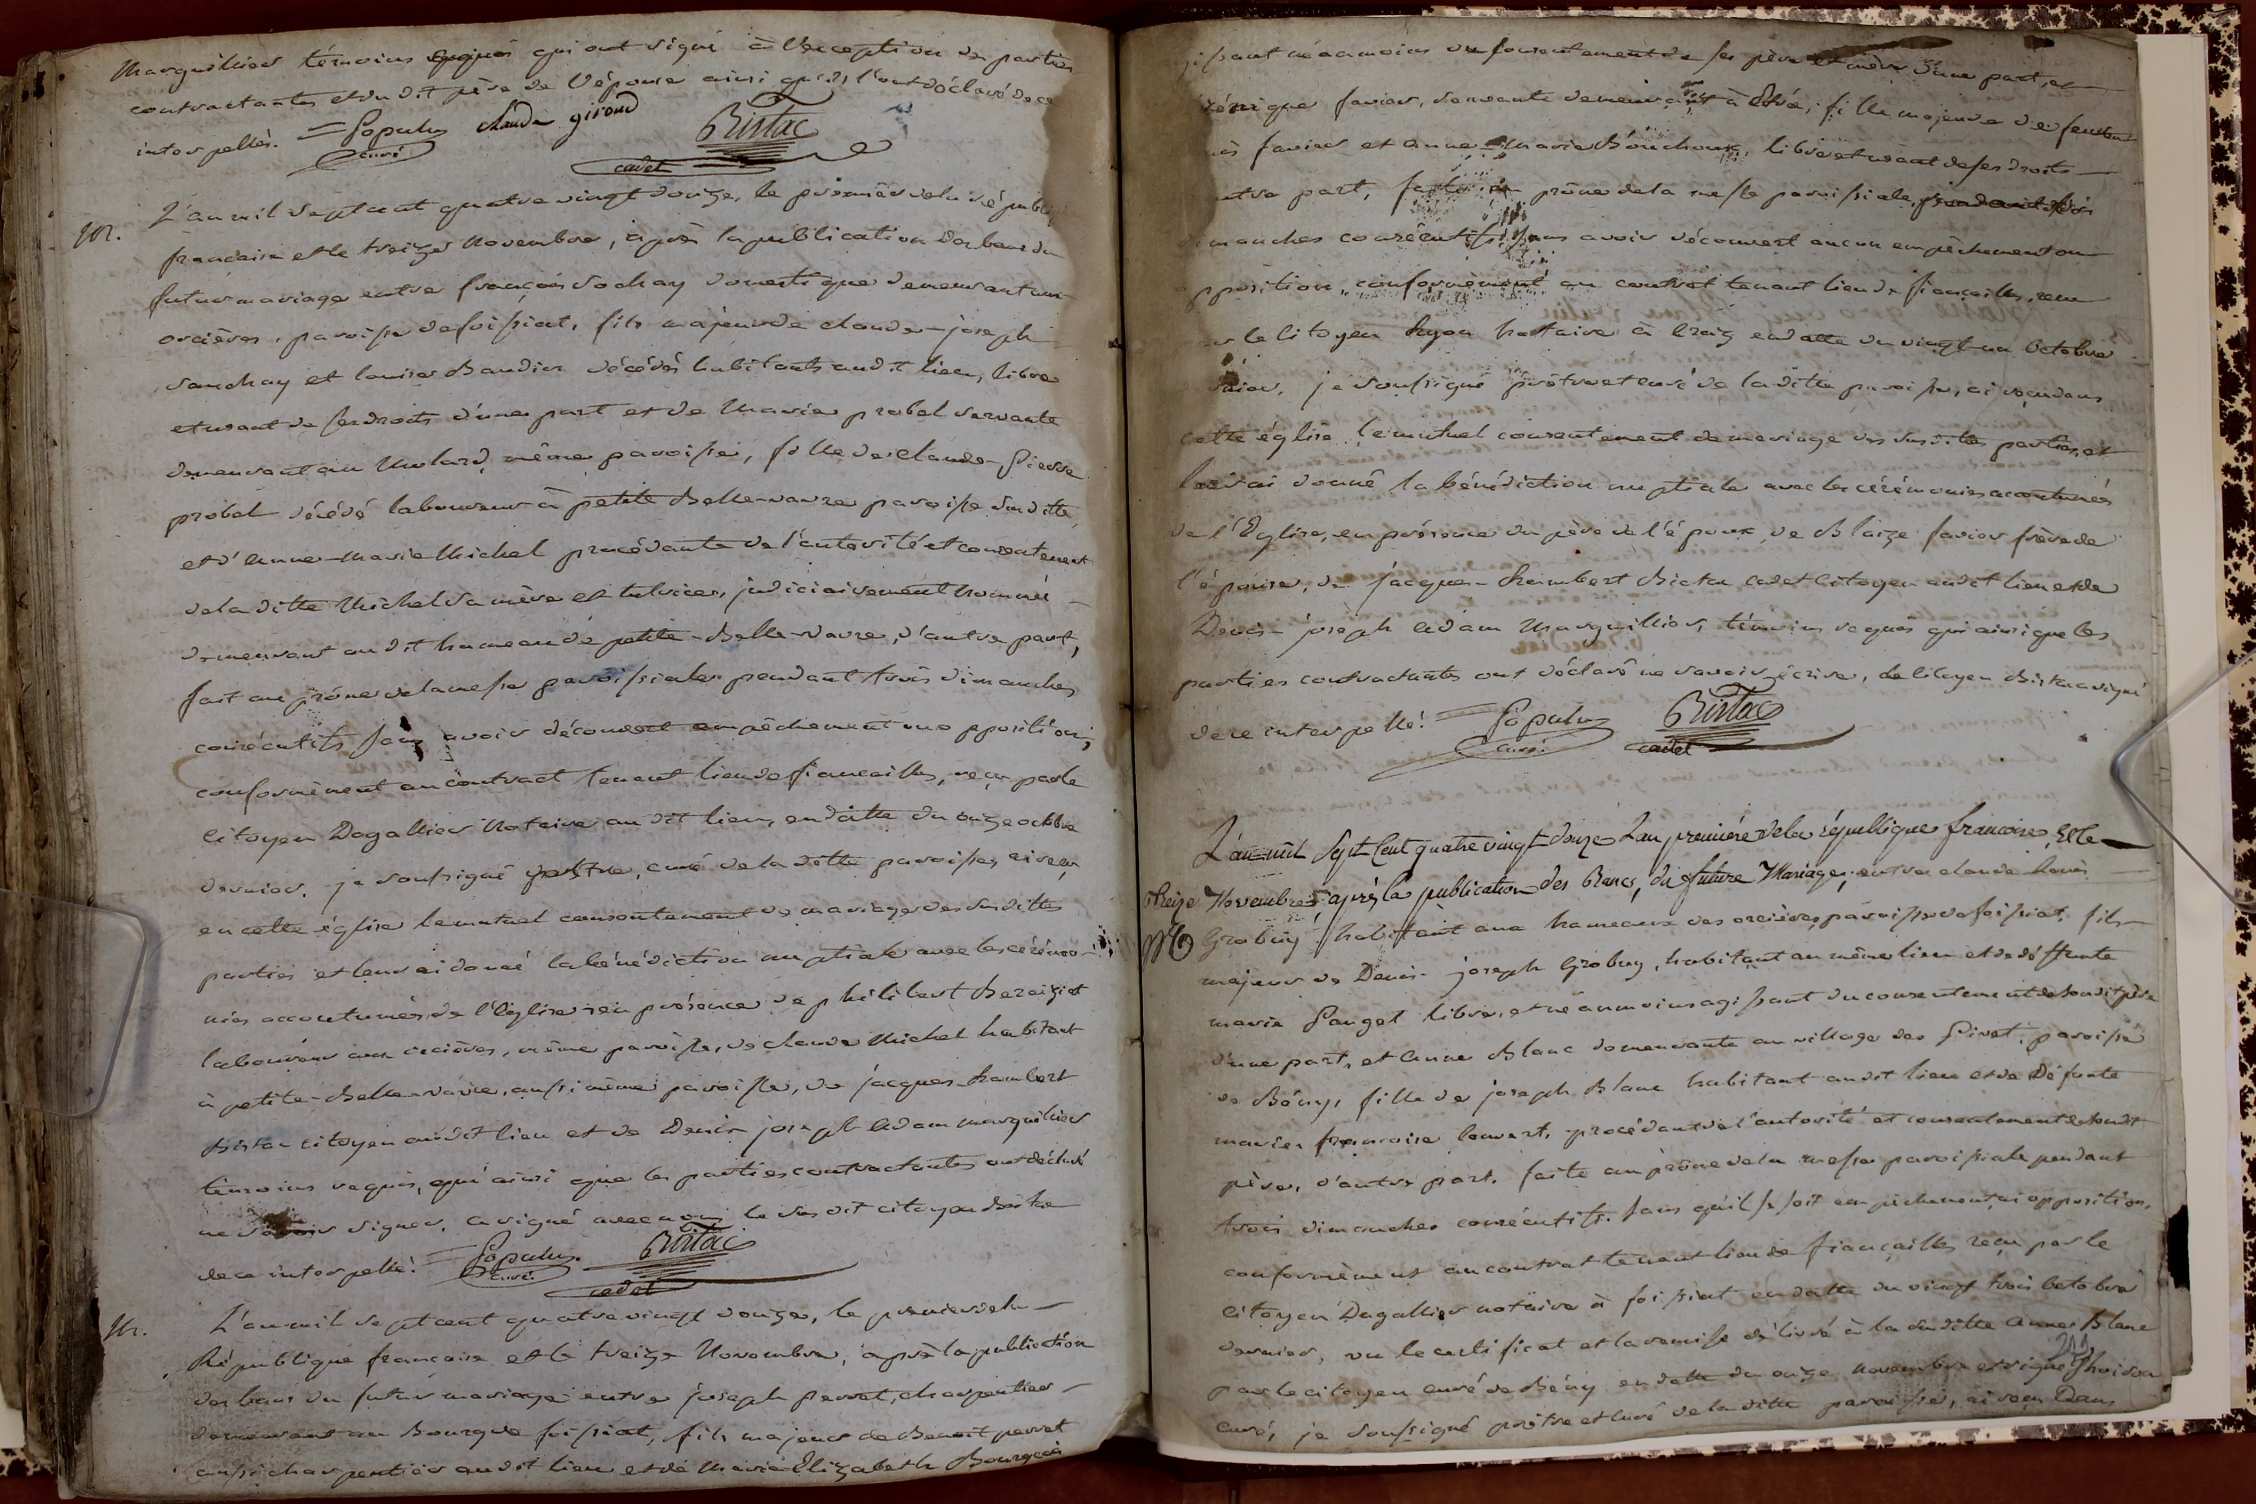 Marguillier témoins requis qui ont signé à l'exception des parties
contractantes et du dit père de l'épouse ainsi qu'ils l'ont déclaré de ce
interpellés. Populus curé claude giroud Bistac cadet
M. L'an mil sept cent quatre vingt douze, le premier de la républ
francaise et le treize Novembre, après la publication des bans du
futur mariage entre françois Sochay domestique demeurant aux
orcières, paroisse de foissiat, fils majeur de claude-joseph
sauchay et louise Baudier décédés habitants audit lieu, libre
et usant de ses droits d'une part et de Marie probel servante
demeurant au Molard, même paroisse, fille de claude-Pierre
probel décédé laboureur à petite Bellevavre paroisse susditte,
et d'Anne-Marie Michel procédante de l'autorité et consentement
de la ditte Michel sa mère et tutrice, judiciairement nommée
demeurant au dit hameau de petite-Belle-vavre, d'autre part,
fait au prône de la messe paroissiale pendant trois dimanches
consécutifs sans avoir découvert empêchement ou opposition,
conformément au contract tenant lieu de fiancailles, reçu par le
citoyen Dagallier Notaire au dit lieu, en datte du onze octobre
dernier. je soussigné prêtre, curé de la ditte paroisse, ai reçu
en cette église le mutuel consentement de mariage des susdittes
parties et leur ai donné la bénédiction nuptiale avec les cérémo-
nies accoutumées de l'Eglise en présence de philibert Bereiziat
laboureur aux orcières, même paroisse, de claude Michel habitant
à petite-Belle-vavre, aussi même paroisse, de jacques-Lambert
Bistac citoyen audit lieu et de Denis-joseph Adam marguillier
témoins requis, qui ainsi que les parties contractantes ont déclaré
ne savoir signer. a signé avec nous le susdit citoyen Bistac
de ce interpellé. Populus curé. Bistac cadet
M. L'an mil sept cent quatre vingt douze, le premier de la
République francaise et le treize Novembre, après la publication
des bans du futur mariage entre joseph perret, charpentier
demeurant au Bourg de foissiat, fils majeur de Benoit perret
aussi charpentier audit lieu et de Marie Elizabeth Bourgeois
gissant néanmoins du consentement de ses père et mère d'une part, et
favier, servante demeurant à Etré, fille majeure de feu
favier et Anne-Marie Bouchoux, libre et usant de ses droits
autre part, faite au prône de la messe paroissiale, pendant trois
dimanches consécutifs sans avoir découvert aucun empêchement ou
opposition, conformément au contrat tenant lieu de fiancailles, reçu
par le citoyen Notaire à en datte du vingt un Octobre
dernier. je soussigné prêtre et curé de la ditte paroisse, ai reçu dans
cette église le mutuel consentement de mariage des susdittes parties, et
leur ai donné la bénédiction nuptiale avec les cérémonies accoutumées
de l'Eglise, en présence du père de l'époux, de Blaize favier frère de
l'épouse, de jacques-Lambert Bistac cadet citoyen audit lieu et de
Denis-joseph Adam Marguillier, témoins requis qui ainsi que les
parties contractantes ont déclaré ne savoir écrire, le citoyen Bistac a signé
de ce interpellé. Populus curé. Bistac cadet
L'an mil Sept Cent quatre vingt douze L'an première de la république francoise, Et le
treize Novembre, après la publication des Bancs, du future Mariage, entre claude Louis
M Grobuy habitant aux hameaux des orcières, paroisse de foissiat, fils
majeur de Denis-joseph Grobuy, habitant au même lieu et de déffunte
marie Pauget libre, et néanmoins agissant du consentement de son dit père
d'une part, et Anne Blanc demeurante au village des Pivet, paroisse
de Bény, fille de joseph Blanc habitant audit lieu et de Défunte
marie francoise louvert, procédant de l'autorité et consentement de son dit
père, d'autre part. faite au prône de la messe paroissiale pendant
trois dimanches consécutifs. sans qu'il se soit empêchement, ni opposition,
conformément au contrat tenant lieu de fiançailles reçu par le
citoyen Dagallier notaire à foissiat en datte du vingt trois Octobre
dernier, vu le certificat et la remise délivré à la ditte Anne Blanc
par le citoyen curé de Bény en datte du onze novembre et signé
curé, je soussigné prêtre et curé de la ditte paroisse, ai reçu Dans
211